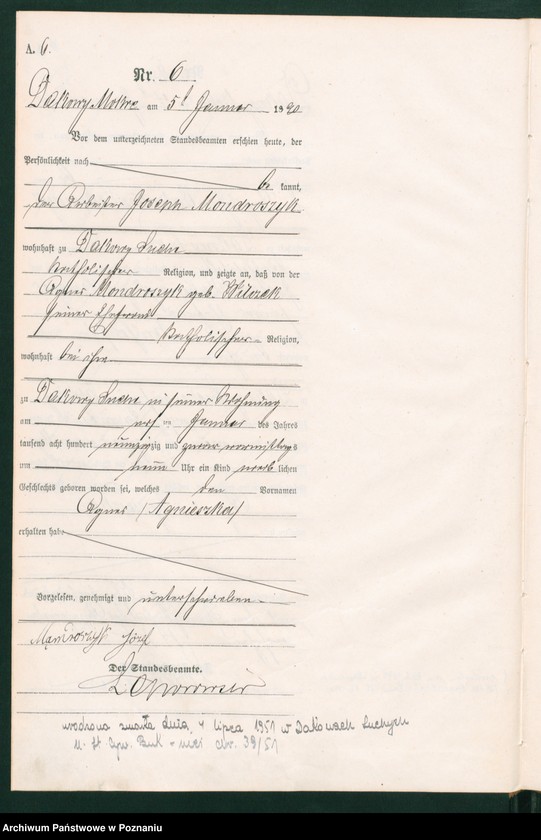 A. 6.
Nr. 6
Dakowy Mokre am 5t Januar 1890
Vor dem unterzeichneten Standesbeamten erschien heute, der
Persönlichkeit nach
be kannt,
der Arbeiter Joseph Mondroszyk
wohnhaft zu Dakowy Suche
katholischer Religion, und zeigte an, daß von der
Agnes Mondroszyk geb.
seiner Ehefrau
katholischer Religion,
wohnhaft bei ihm
zu Dakowy Suche in seiner Wohnung
am Januar des Jahres
tausend acht hundert neunzig zig und zwar vormittags
um neun Uhr ein Kind weib lichen
Geschlechts geboren worden sei, welches den Vornamen
Agnes (Agnieszka)
erhalten habe
Vorgelesen, genehmigt und unterschrieben
Józef
Der Standesbeamte.
urodzona zmarła dnia 4 lipca 1951 w Dakowach Suchych
39/51
Archiwum Państwowe w Poznaniu